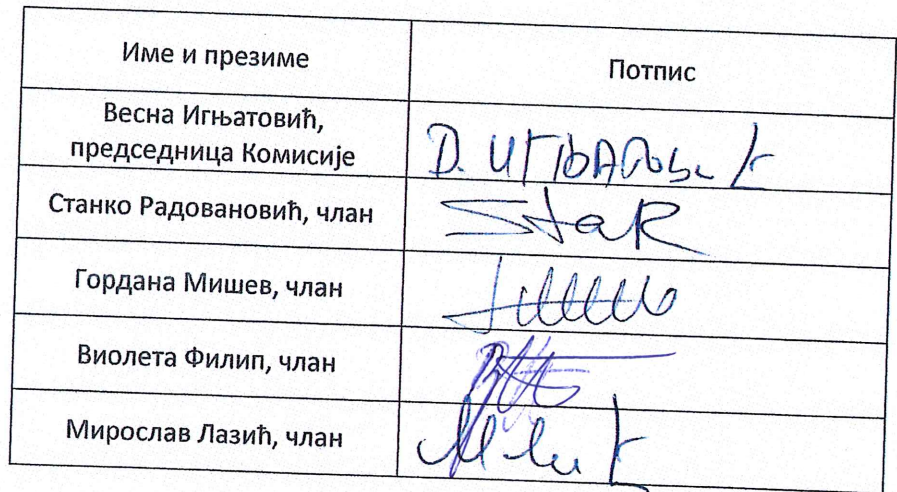 Име и презиме
Потпис
Весна Игњатовић,
председница Комисије
Станко Радовановић, члан
StaR
Гордана Мишев, члан
Виолета Филип, члан
Мирослав Лазић, члан